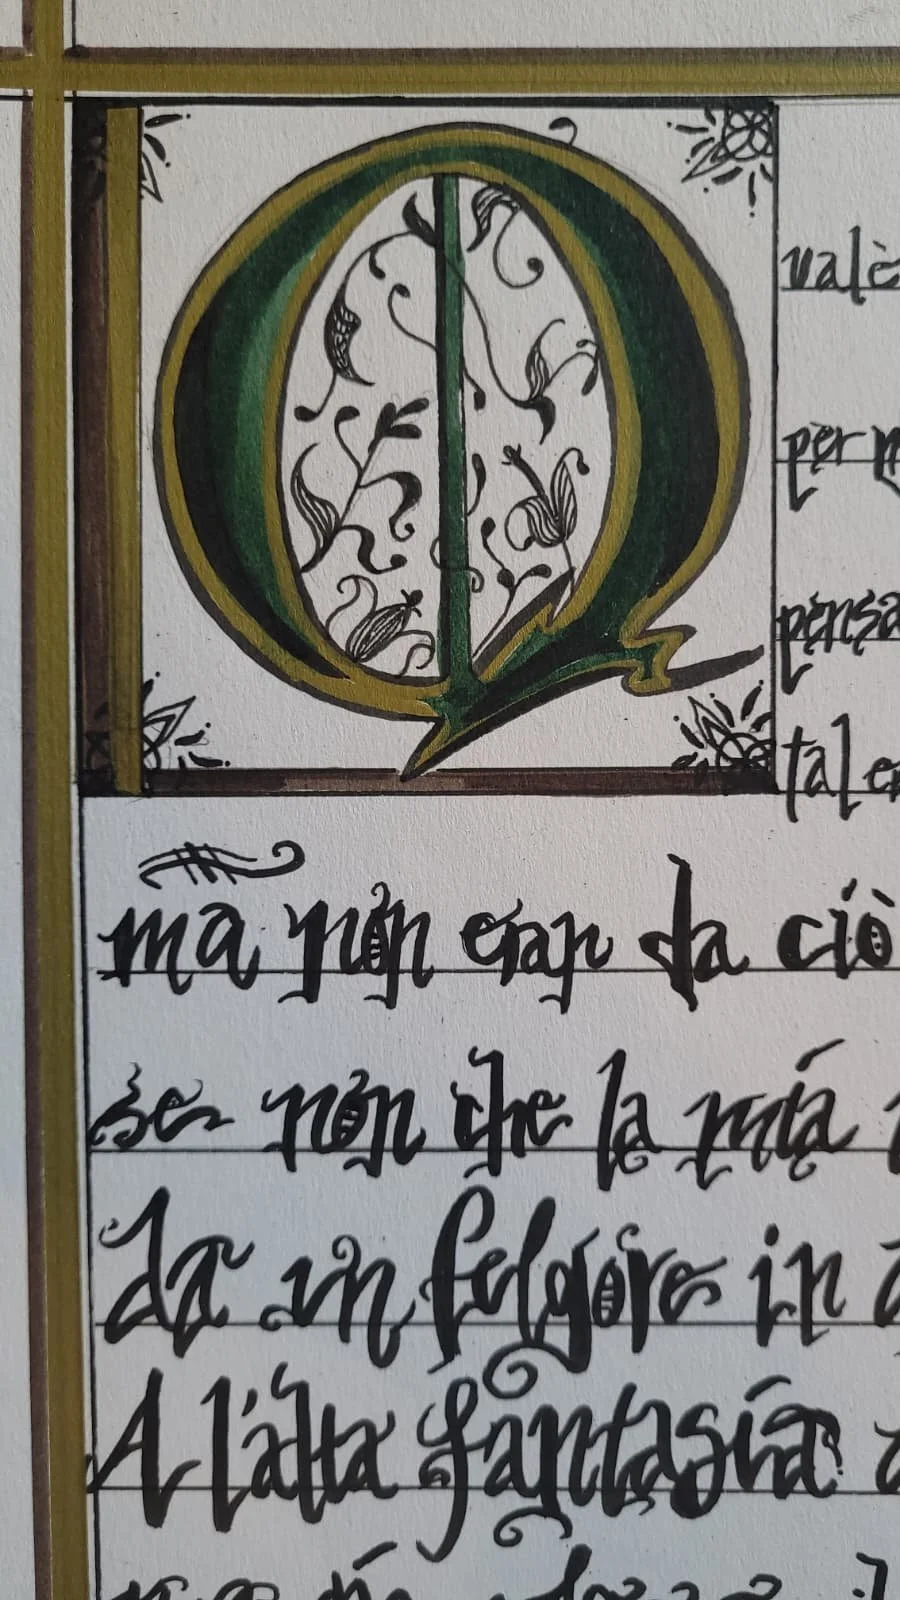 Q
valè
per m
pensa
tal e
ma non eran da ciò
se non che la mia
da un felgore in
A l'alta fantasia